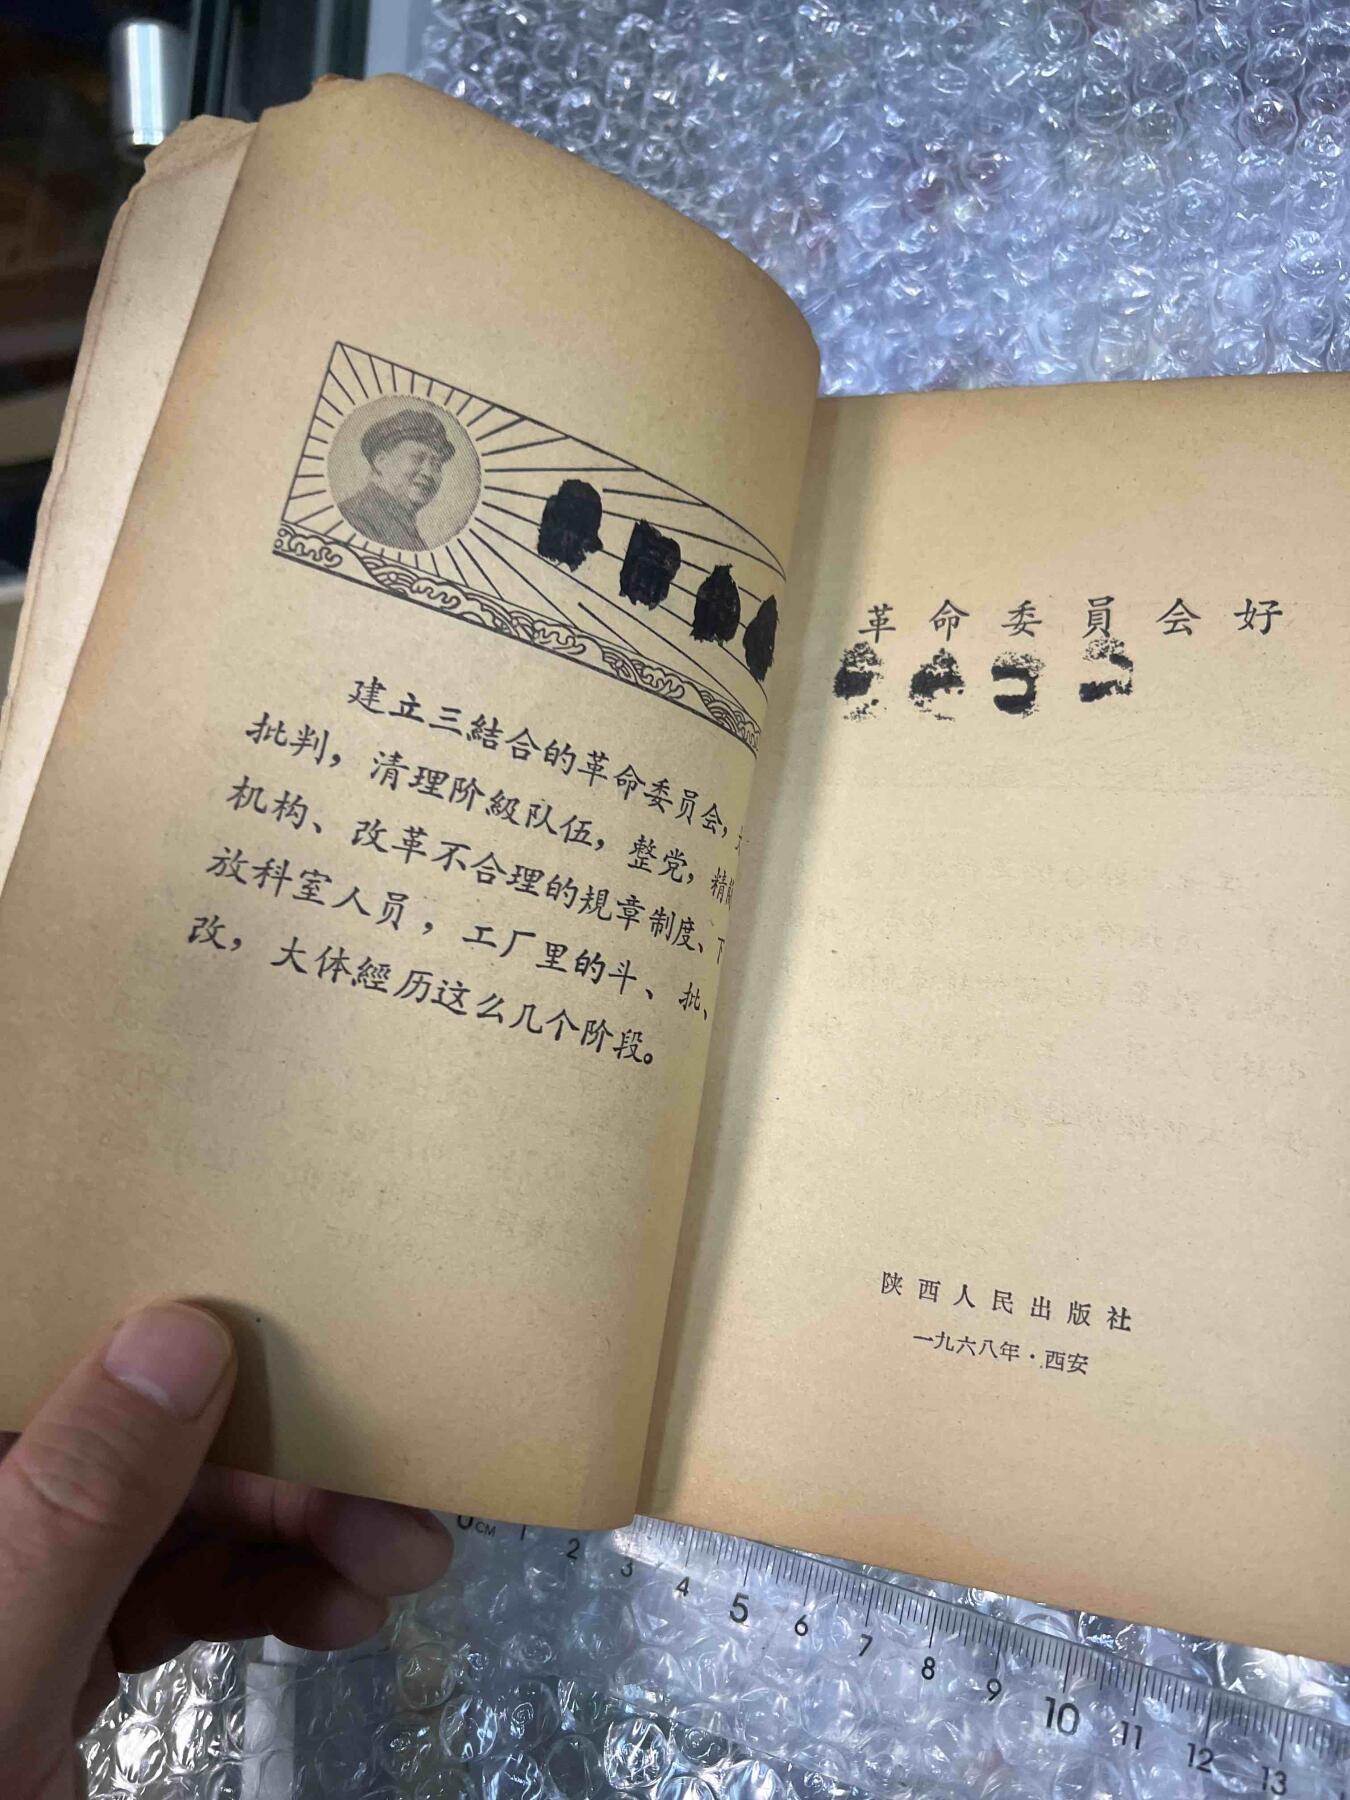 建立三結合的革命委员会，
批判，清理阶級队伍，整党，精
机构、改革不合理的規章制度、下
放科室人员，工厂里的斗、批、
改，大体經历这么几个阶段。
革命委員会好
陕西人民出版社
一九六八年·西安
0CM 1 2 3 4 5 6 7 8 9 10 11 12 13